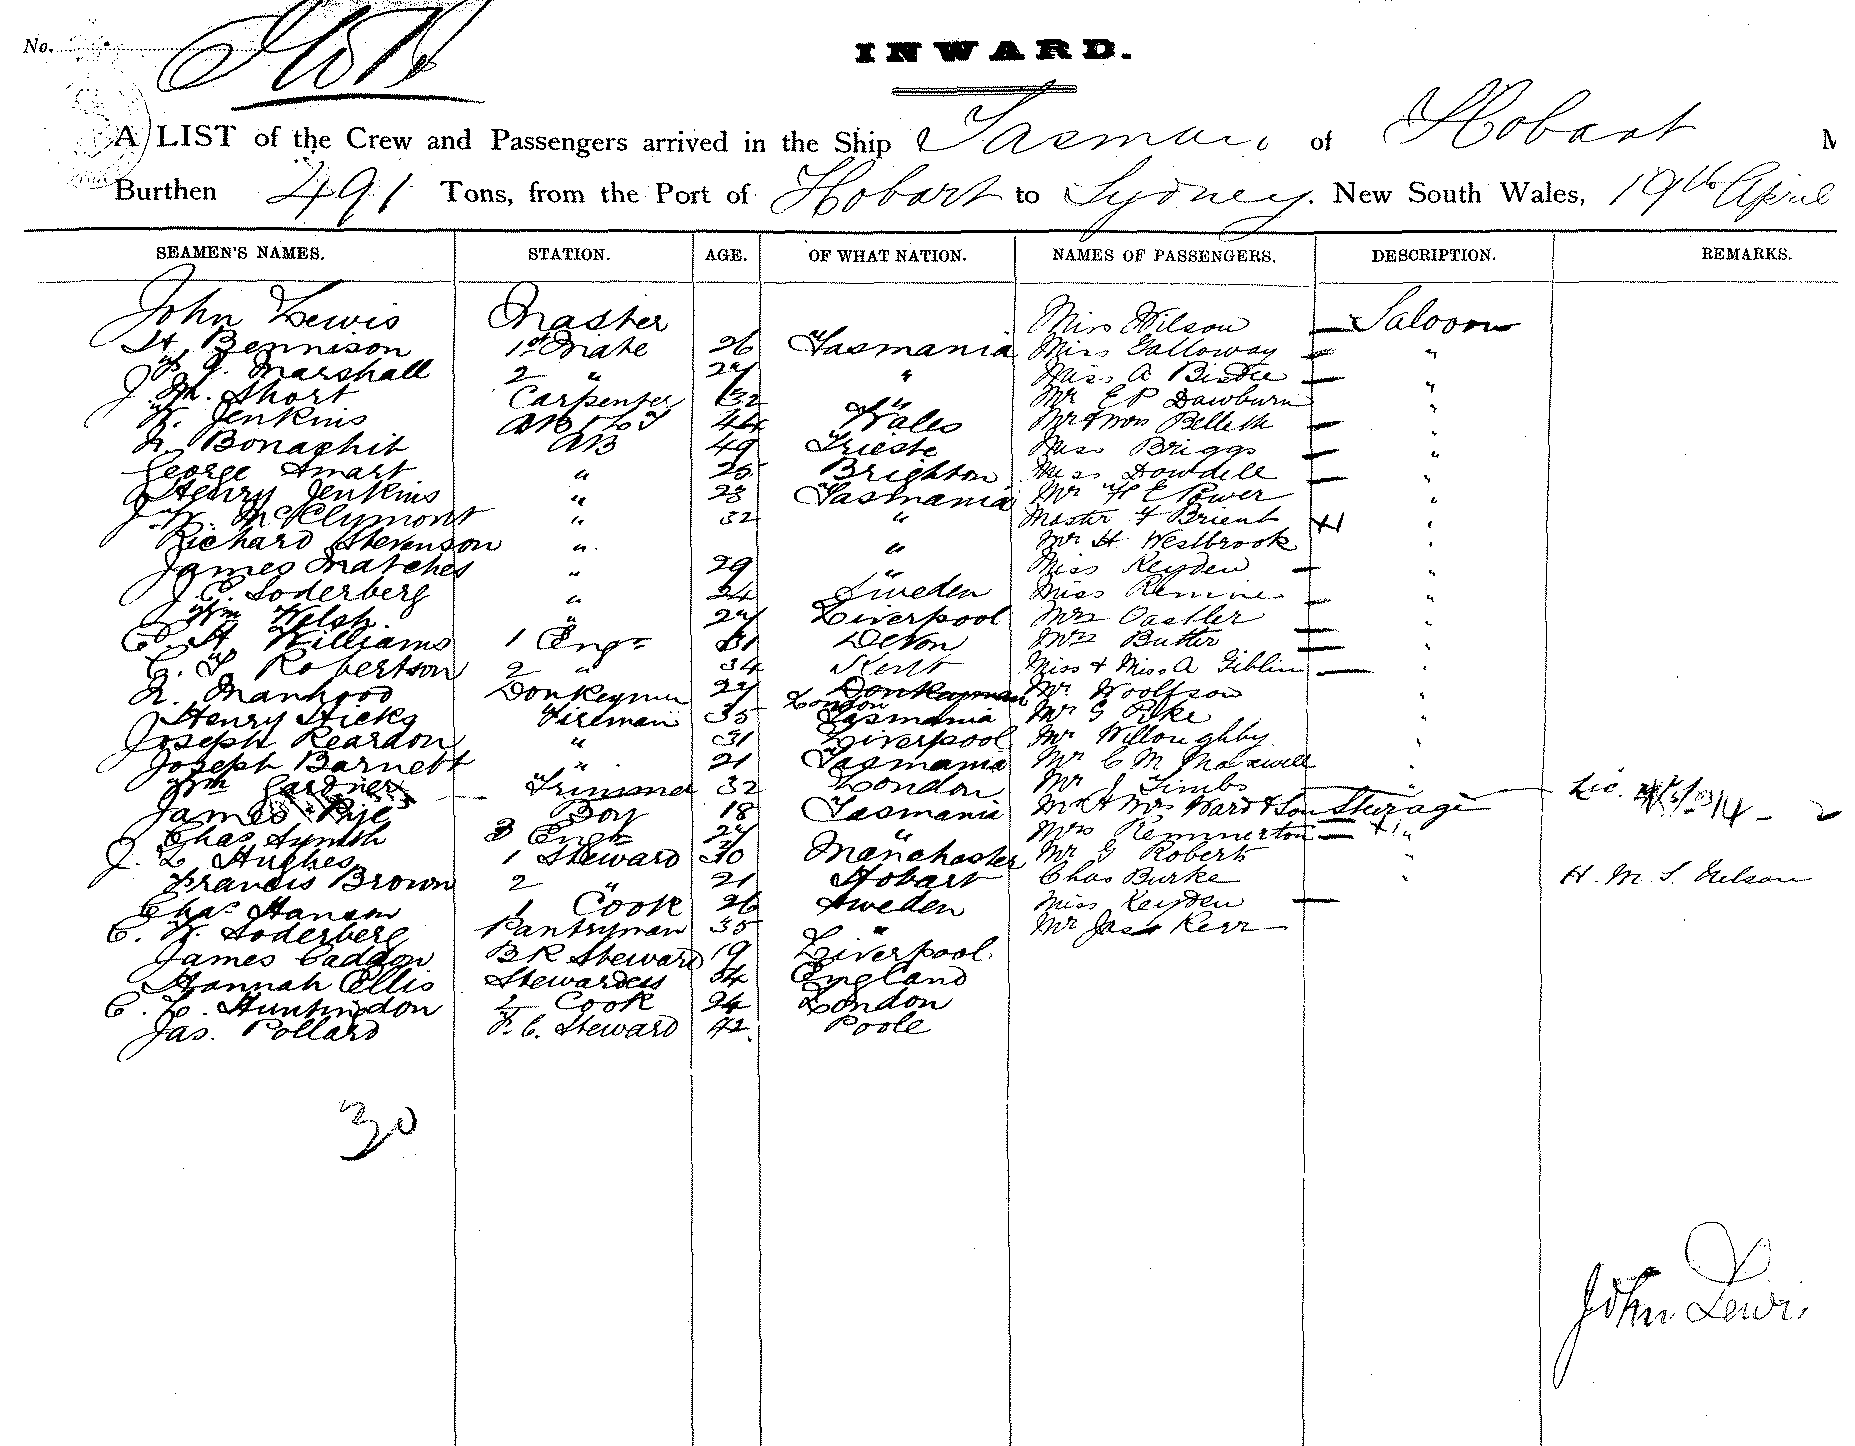 No.
INWARD.
A LIST of the Crew and Passengers arrived in the Ship Tasman of Hobart
Burthen 491 Tons, from the Port of Hobart to Sydney. New South Wales, 19th April
SEAMEN'S NAMES. STATION. AGE. OF WHAT NATION. NAMES OF PASSENGERS. DESCRIPTION. REMARKS.
John Lewis Master Miss Wilson — Saloon
H. Bennison 1st Mate 26 Tasmania Miss Galloway — "
Marshall 2 " 27 " Miss A — "
J. M. Short Carpenter 32 " Mr E P Dawburn "
W. Jenkins AB 44 Wales Mr & Mrs —
Bonaghit AB 49 Trieste Miss Briggs — "
George Smart " 25 Brighton Miss Dowdell — "
Henry Jenkins " 23 Tasmania Mr H E Power "
J. W. McKlymont " 32 " Master F Brient "
Richard Stevenson " " Mr H. Westbrook "
James Matches " 29 " Miss Keyden — "
J. C. Soderberg " 24 Sweden Miss — "
Wm Welsh. " 27 Liverpool Mrs Oastler — "
C. H. Williams 1 Engr 31 Devon Mrs Butter —
C. Robertson 2 " 34 Kent Miss & Miss A Giblin —
Manhood Donkeyman 27 London Mr. Woolfson "
Henry Hicks Fireman 35 Tasmania Mr G Pike "
Joseph Reardon " 31 Liverpool Mr Willoughby "
Joseph Barnett " 21 Tasmania Mr C M Maxwell "
Wm Gardner Trimmer 32 London Mr J Timbs " Lic.
James Pije Boy 18 Tasmania Mr & Mrs Ward & Son Sturage
Chas Synnth 3 Engr 27 " Mrs Remmerton — "
J. L. Hughes 1 Steward 30 Manchester Mr G Roberts "
Francis Brown 2 " 21 Hobart Chas Burke " H. M. S. Nelson
Chas Hansen 1 Cook 26 Sweden Miss Keyden —
C. W. Soderberg Pantryman 35 " Mr Jas Kerr
James Caddon BR Steward 19 Liverpool.
Hannah Ellis Stewardess 34 England
C. C. Huntindon 2 Cook 24 London
Jas. Pollard F. C. Steward 42. Poole
30
John Lewis